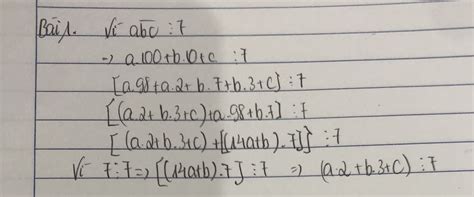 Bài 1. Vì abc ⋮ 7
→ a.100+b.10+c ⋮ 7
[a.98+a.2+b.7+b.3+c] ⋮ 7
[(a.2+b.3+c)+a.98+b.7] ⋮ 7
[(a.2+b.3+c)+[(14a+b).7]} ⋮ 7
Vì 7 ⋮ 7 => [(14a+b).7] ⋮ 7 => (a.2+b.3+c) ⋮ 7